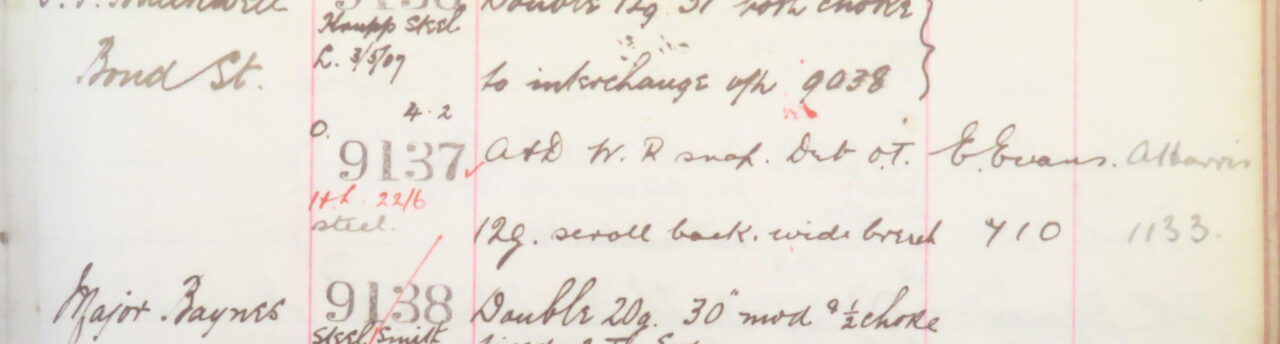 9136 Double 12g. 31" both choke
Krupp steel
L. 3/5/09
Bond St. to interchange wth 9038
4.2
O.
9137 A&D W. R snap. Deb o.T. E. Evans. A Harris
22/6
steel.
12g. scroll back. wide breech 710 1133.
Major Baynes 9138 Double 20g. 30" mod & ½ choke
Steel Smith